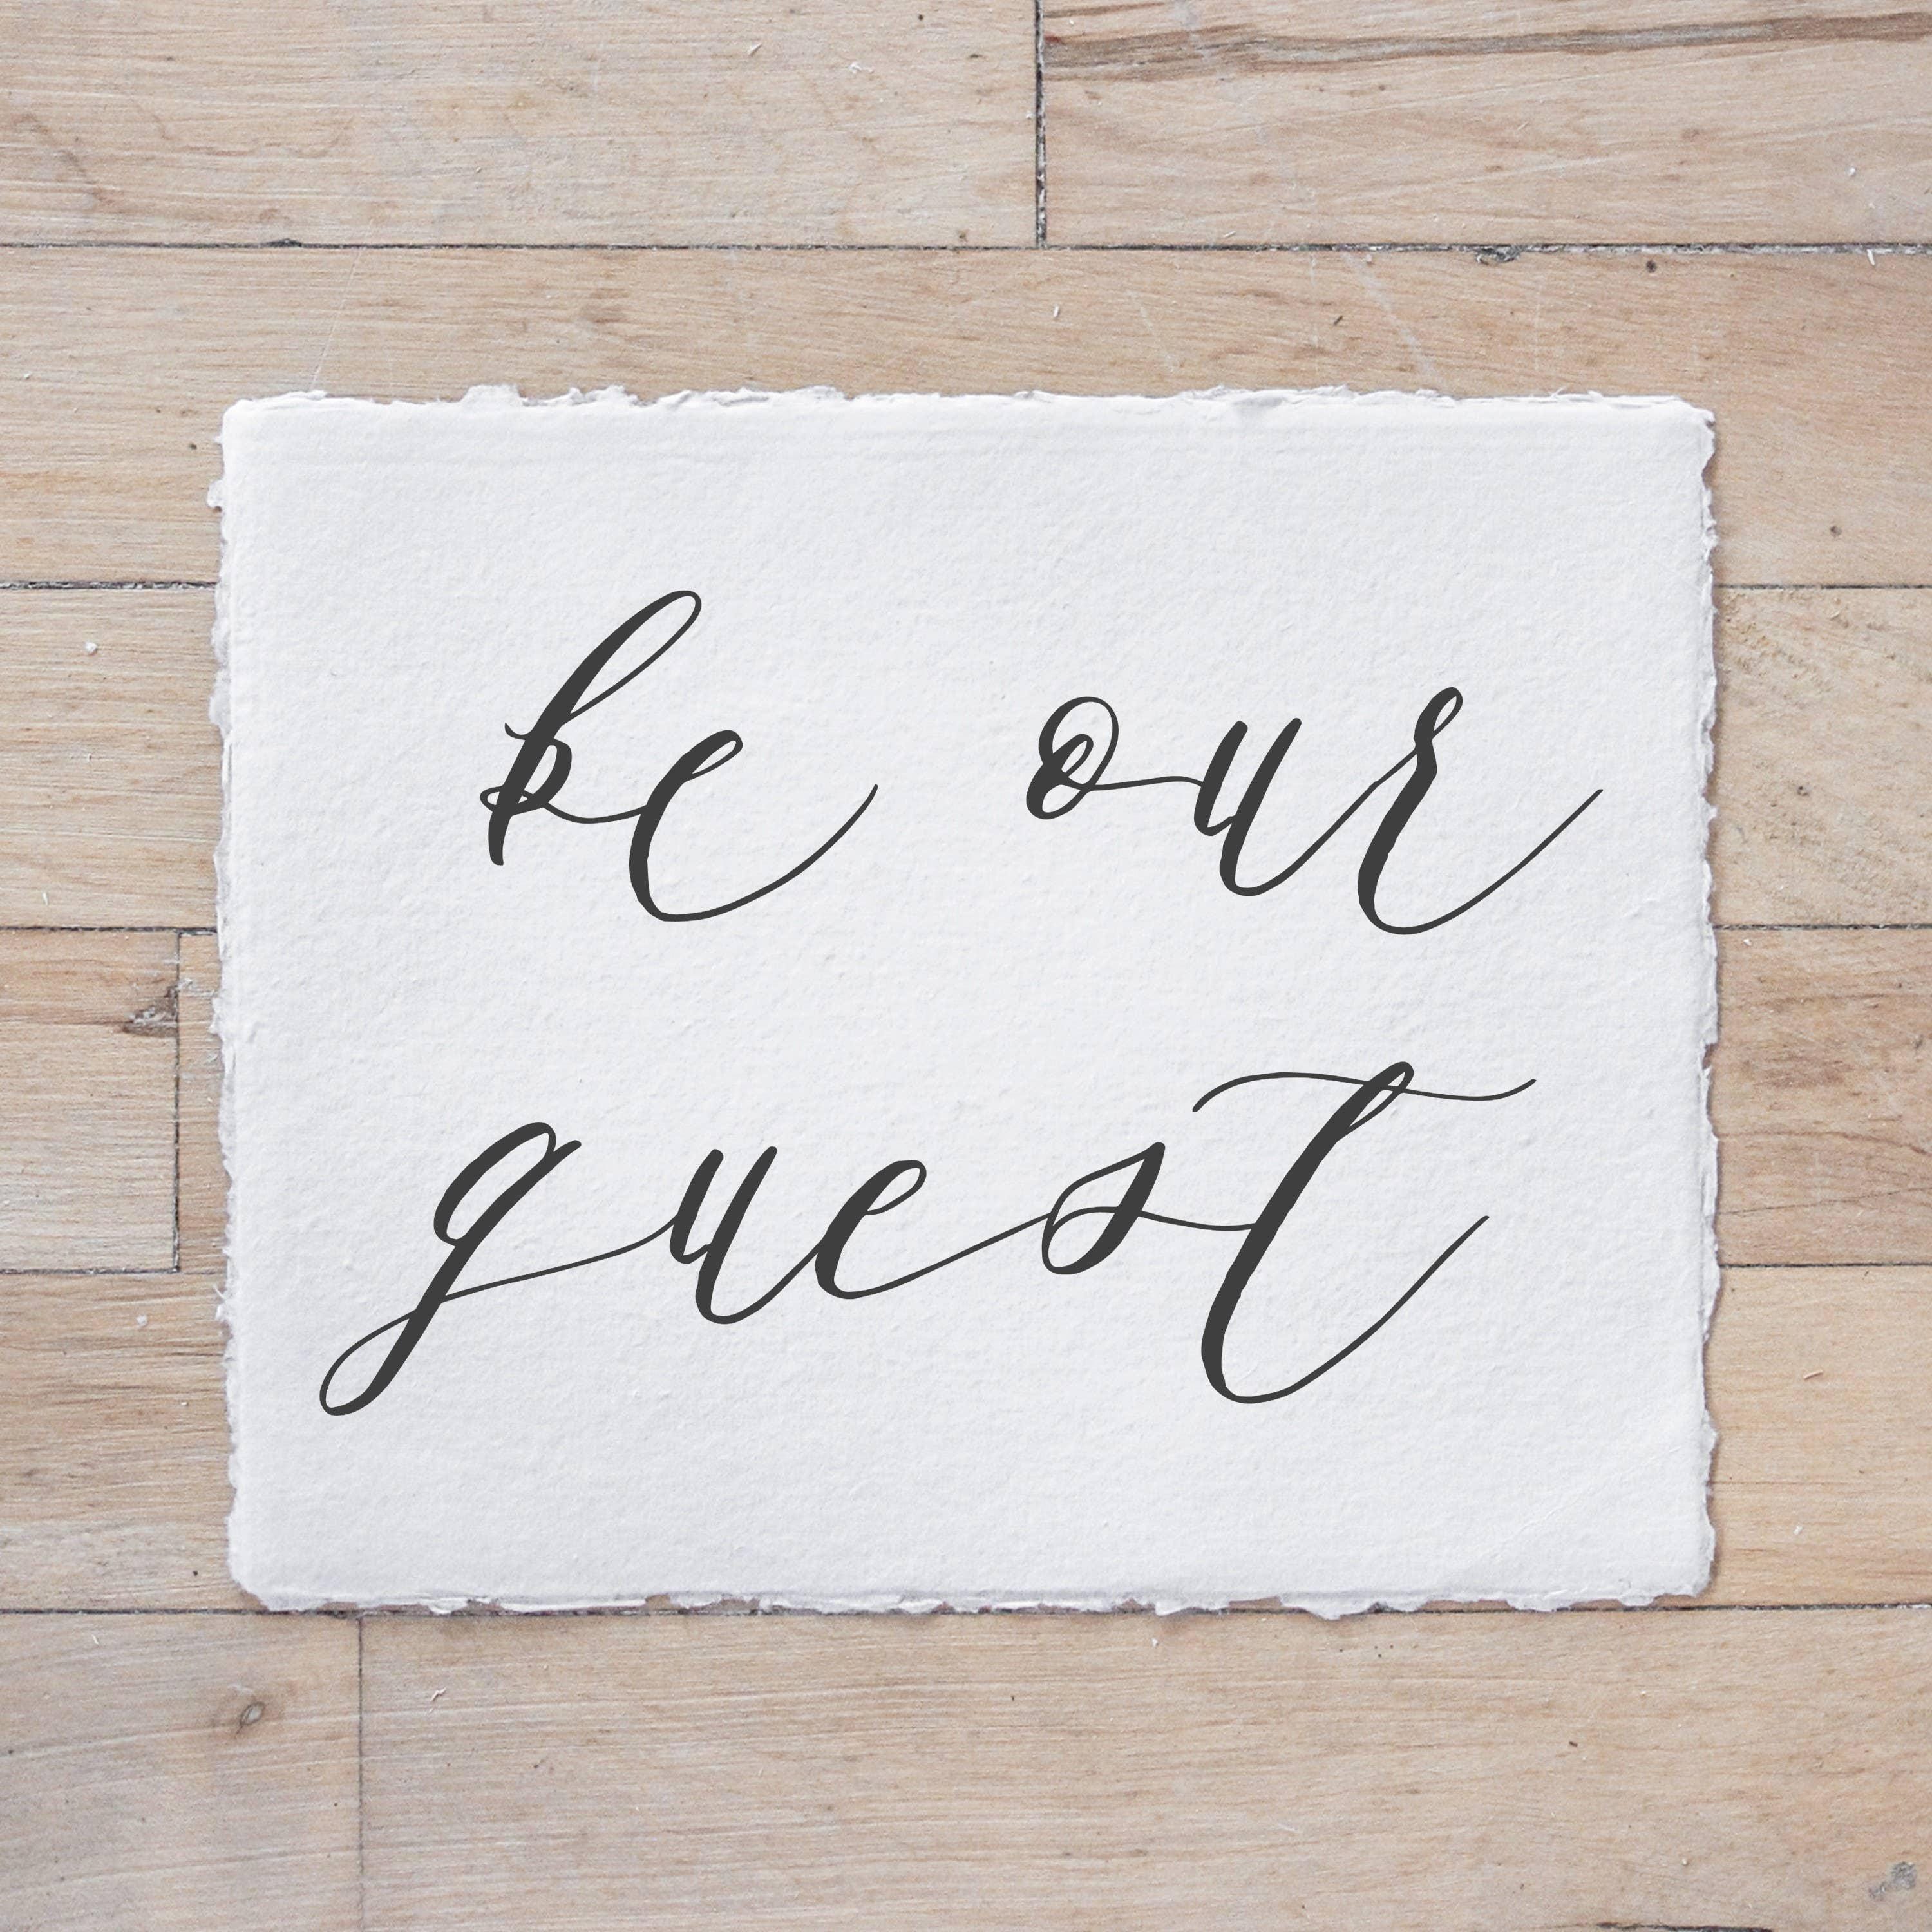 be our
guest